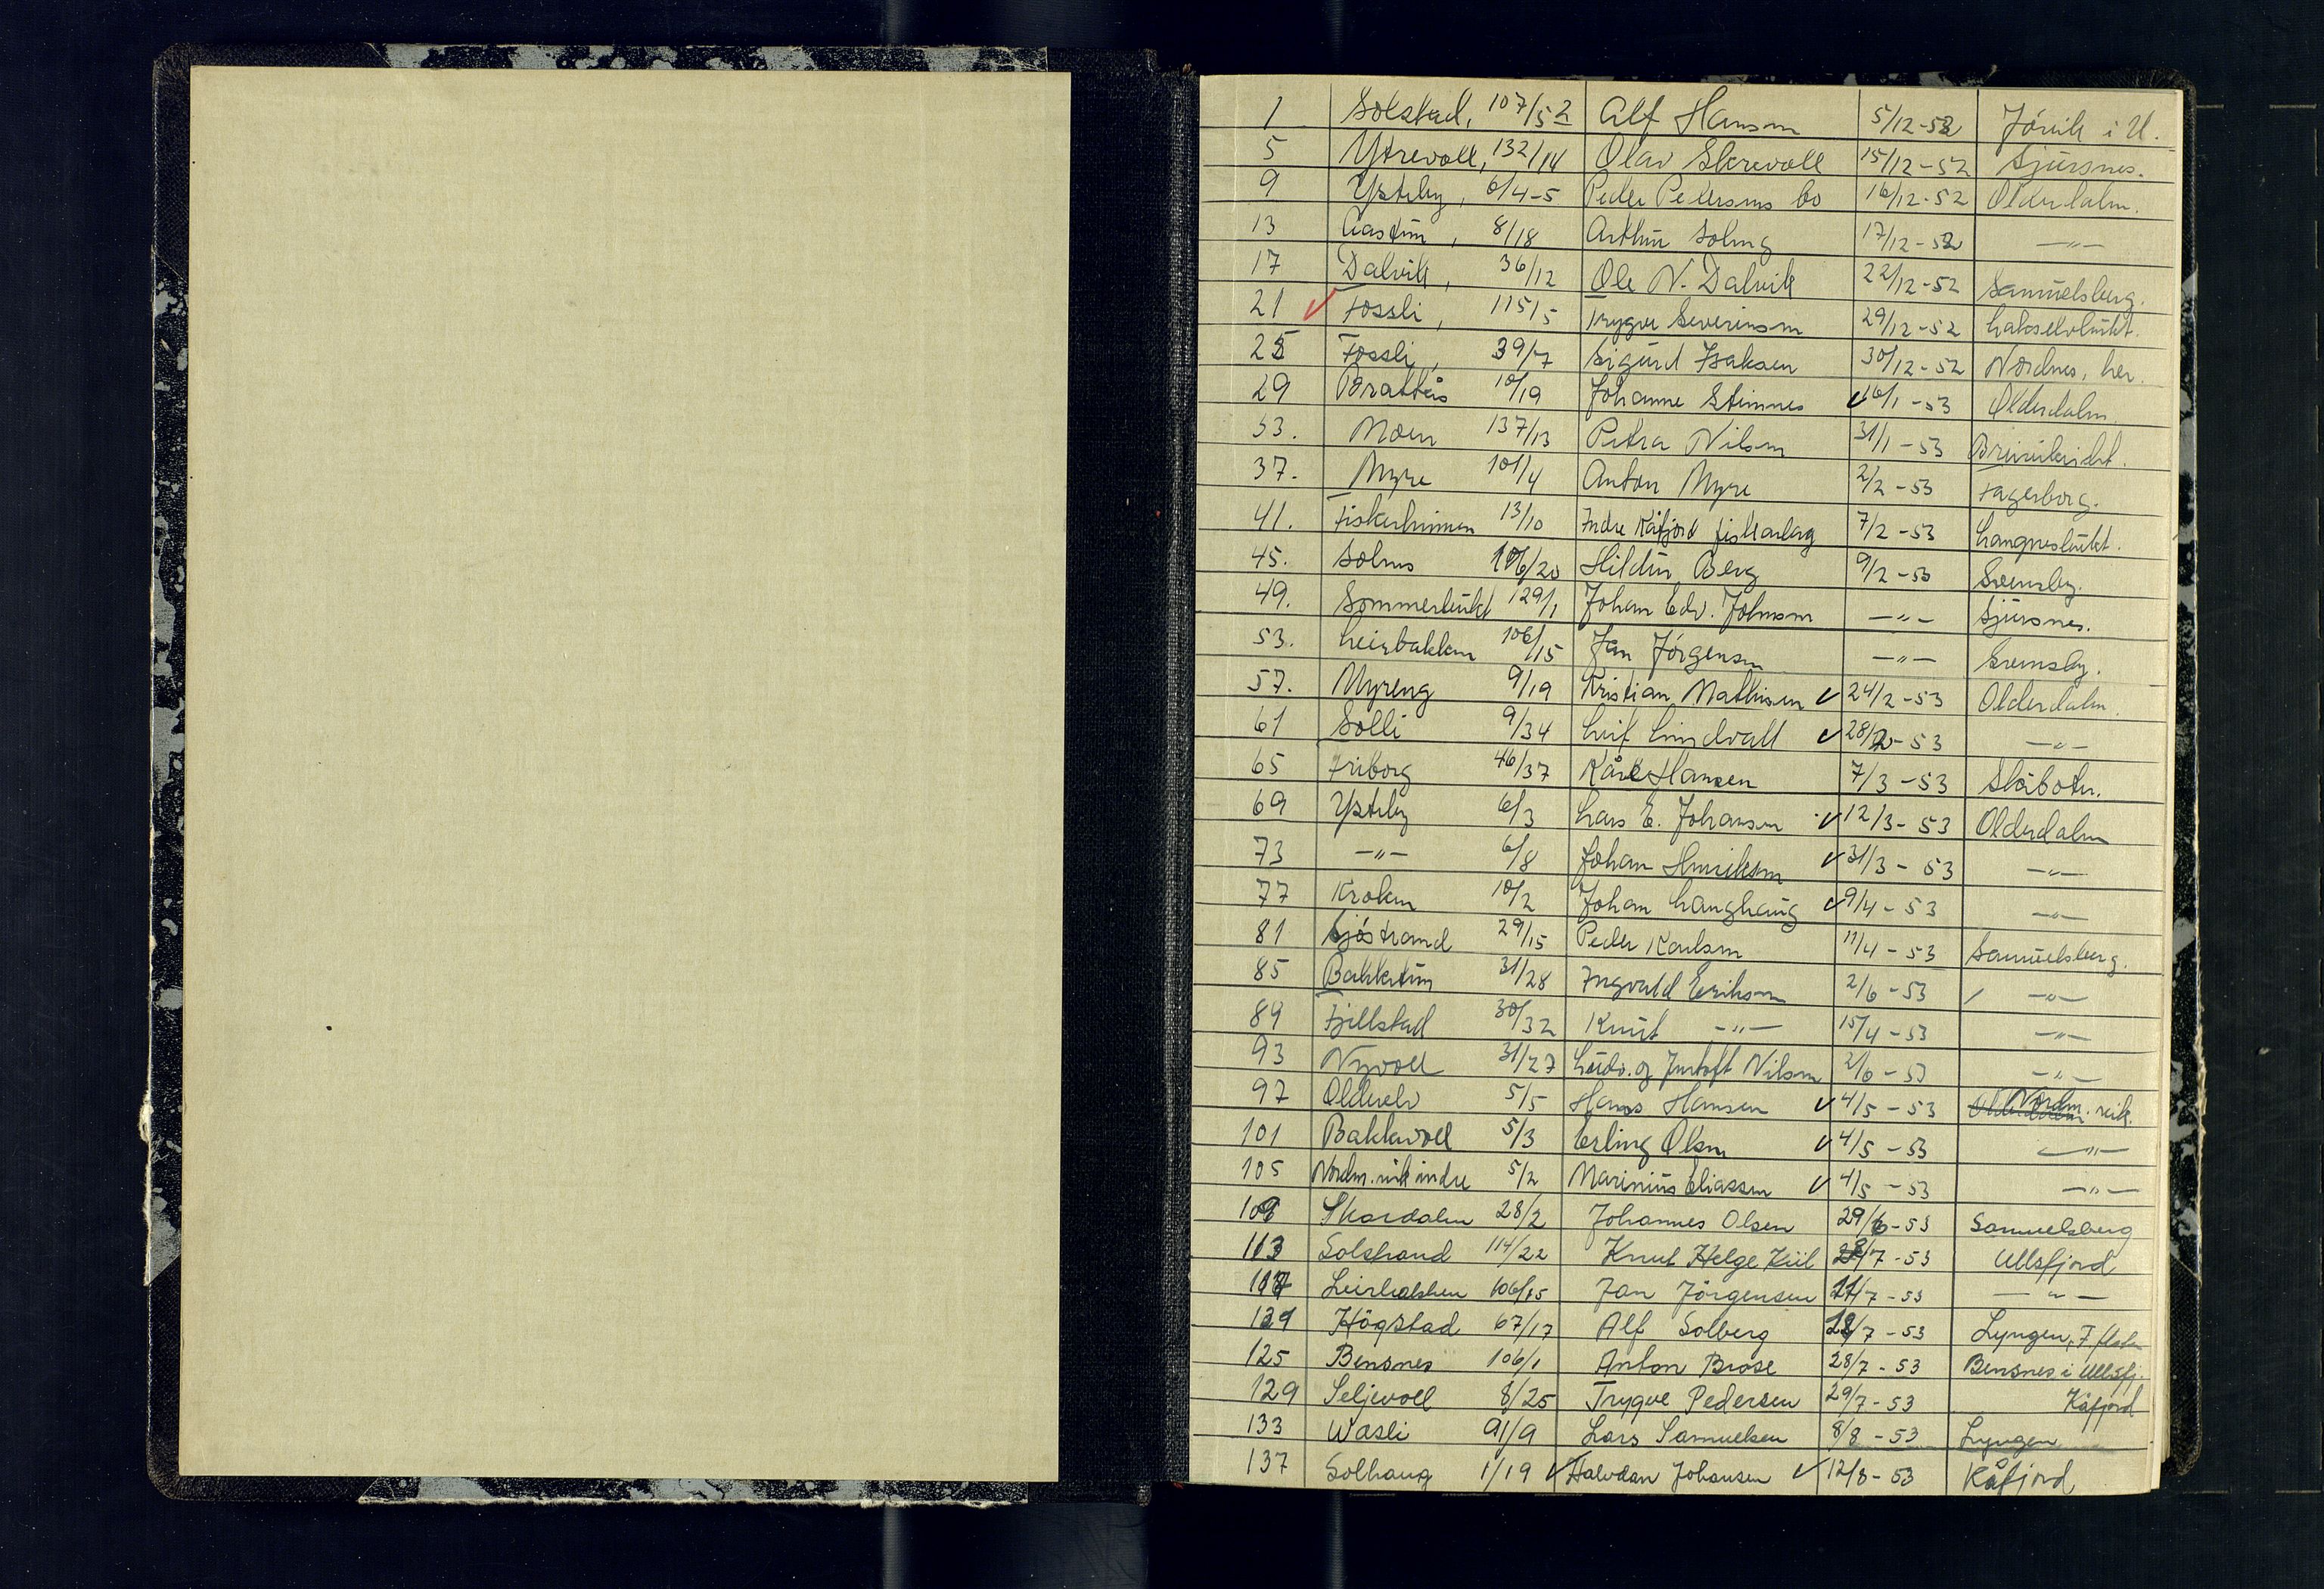 1 Solstad, 107/52 Alf Hansen 5/12-52 Jövik i U.
5 Ytrevoll, 132/14 Olav Skrevoll 15/12-52 Sjursnes.
9 Ysteby, 6/4-5 Peder Pedersens bo 16/12-52 Olderdalen.
13 Aastun, 8/18 Arthur Soleng 17/12-52 —"—
17 Dalvik, 36/12 Ole N. Dalvik 22/12-52 Samuelsberg.
21 ✓ Fossli, 115/5 Trygve Severinsen 29/12-52 Lakselvbukt.
25 Fossli, 39/7 Sigurd Isaksen 30/12-52 Nordnes, her.
29 Brattås 10/19 Johanne Steinnes ✓ 16/1-53 Olderdalen.
33. Moen 137/13 Petra Nilsen 31/1-53
37. Myre 101/4 Anton Myre 2/2-53 Fagerborg.
41. Fiskerheimen 13/10 Indre Kåfjord fiskarlag 7/2-53 Langneslukt.
45. Solnes 106/20 Hildur Berg 9/2-53 Svensby.
49. Sommerbukt 129/1 Johan Edv. Johnsen —"— Sjursnes.
53. Leirbakken 106/15 Jan Jörgensen —"— Svensby.
57. Myreng 9/19 Kristian Mathisen ✓ 24/2-53 Olderdalen.
61 Solli 9/34 Leif Lindvall ✓ 28/2-53 —"—
65 Friborg 46/37 Kåre Hansen 7/3-53 Skibotn.
69 Ysteby 6/3 Lars E. Johansen ✓ 12/3-53 Olderdalen
73 —"— 6/8 Johan Henriksen ✓ 31/3-53 —"—
77 Kroken 10/2 Johan Langhaug ✓ 9/4-53 —"—
81 Sjöstrand 29/15 Peder Karlsen 11/4-53 Samuelsberg.
85 Bakketun 31/28 Ingvald Eriksen 2/6-53 —"—
89 Fjellstad 30/32 Knut —"— 15/4-53 —"—
93 Nyvoll 31/27 Ludv. og Nilsen 2/6-53 —"—
97 Olderelv 5/5 Hans Hansen ✓ 4/5-53 Nordm. vik.
101 Bakkevoll 5/3 Erling Olsen ✓ 4/5-53 —"—
105 Nordm. vik indre 5/2 Marinius Eliassen ✓ 4/5-53 —"—
109 Skardalen 28/2 Johannes Olsen 29/6-53 Samuelsberg
113 Solstrand 114/22 Knut Helge Kiil 2/7-53 Ullsfjord
117 Leirbakken 106/15 Jan Jörgensen 11/7-53 —"—
121 Högstad 67/17 Alf Solberg 18/7-53 Lyngen,
125 Bensnes 106/1 Anton Brose 28/7-53 Bensnes i Ullsfj.
129 Seljevoll 8/25 Trygve Pedersen 29/7-53 Kåfjord
133 Wasli 91/9 Lars Samuelsen 8/8-53 Lyngen
137 Solhaug 1/19 ✓ Halvdan Johansen ✓ 12/8-53 Kåfjord